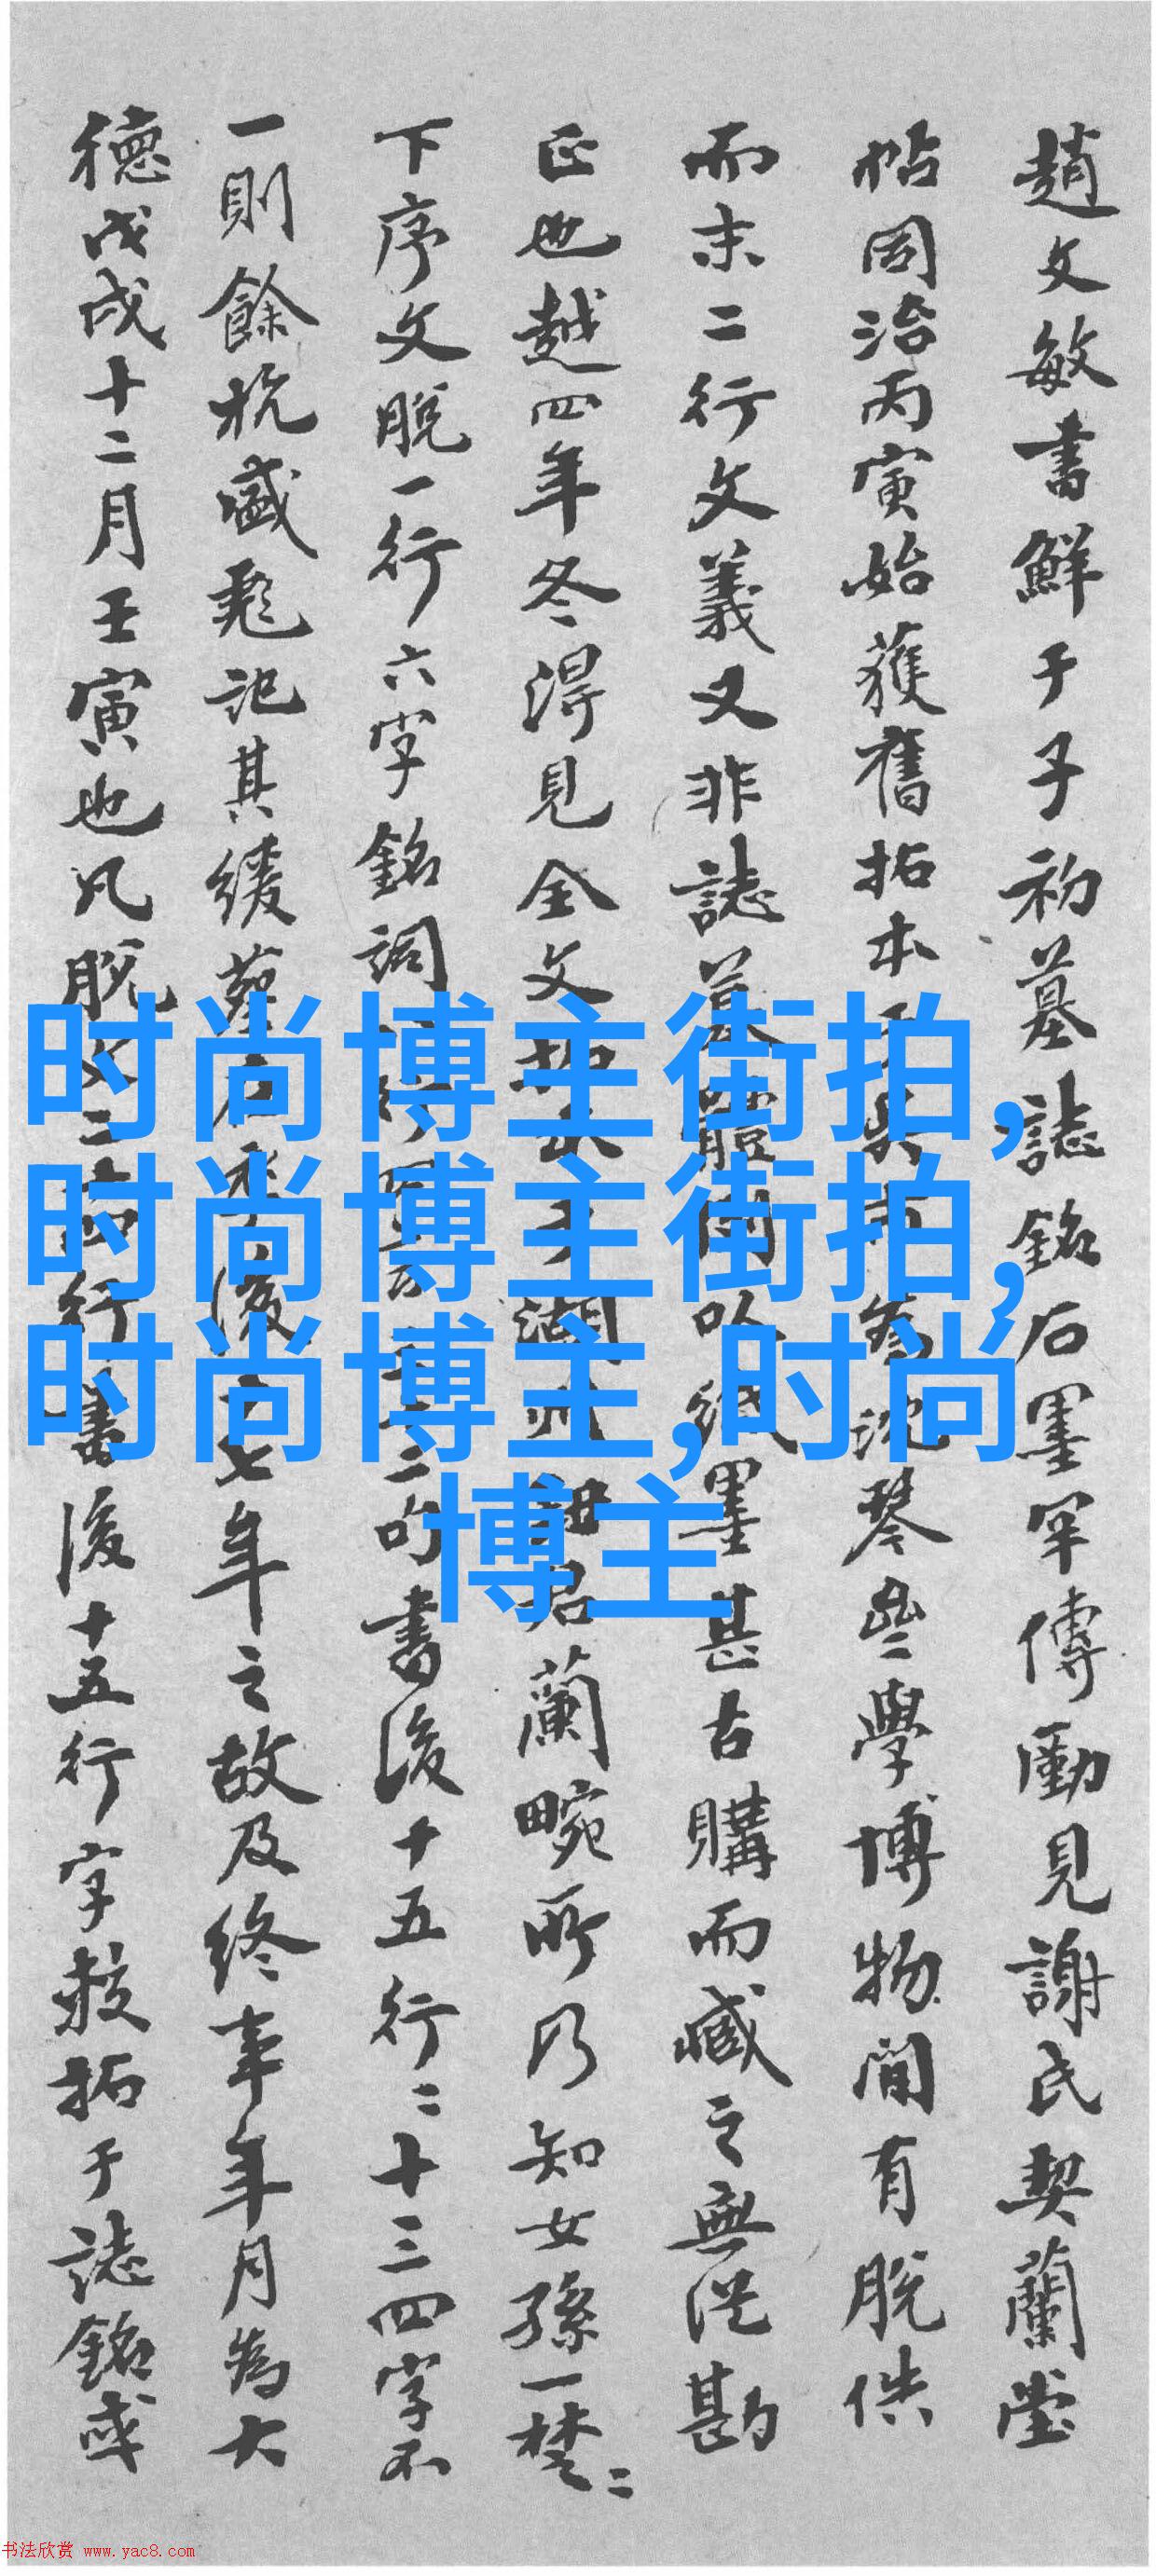 趙文敏書鮮于子初墓誌銘石墨罕傳勵見謝氏契蘭堂
帖同治丙寅始獲舊拓本
琴士學博物間有脫佚
而末二行文義又非誌墓體
墨甚古購而臧之無從勘
正也越四年冬得見全文拓本于湖州
蘭畹所乃知女孫一楚二
下序文脫一行六字銘詞
二句書後十五行二十三四字不
一則餘杭盛彪記其緩葬
年之故及終事年月為大
德戊戌十二月壬寅也凡脫文二
行書後十五行字數拓于誌銘或
时尚博主街拍,
时尚博主街拍,
时尚博主,时尚
博主
书法欣赏 www.yac8.com